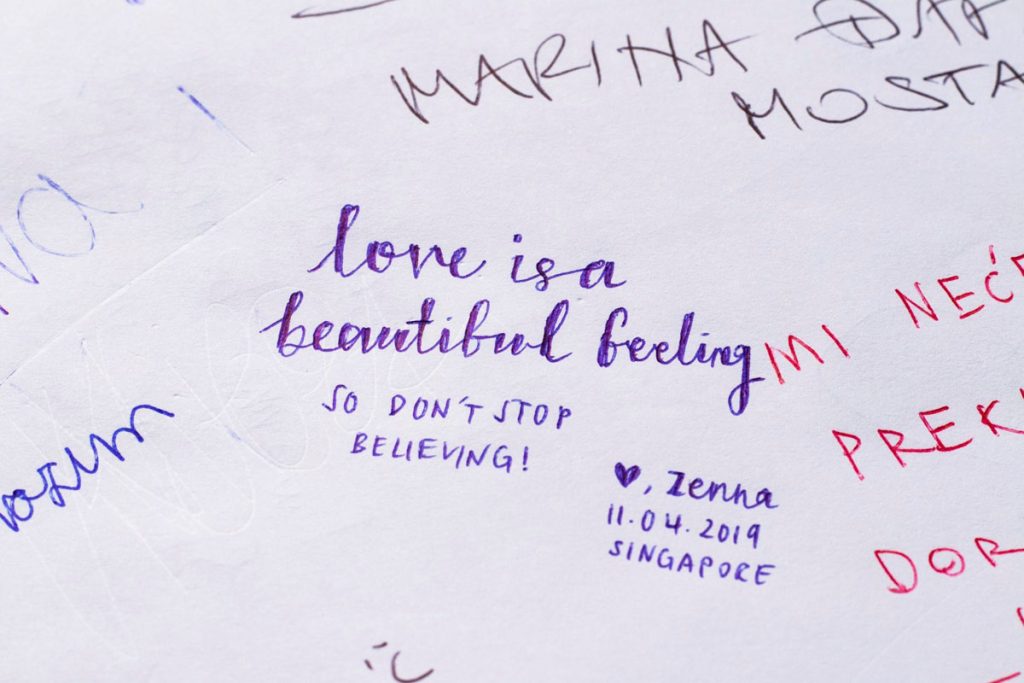 MARINA
MOSTA
love is a
beautiful feeling
SO DON'T STOP
BELIEVING!
♥, Zenna
11.04.2019
SINGAPORE
MI NEĆE
PREK
DOR